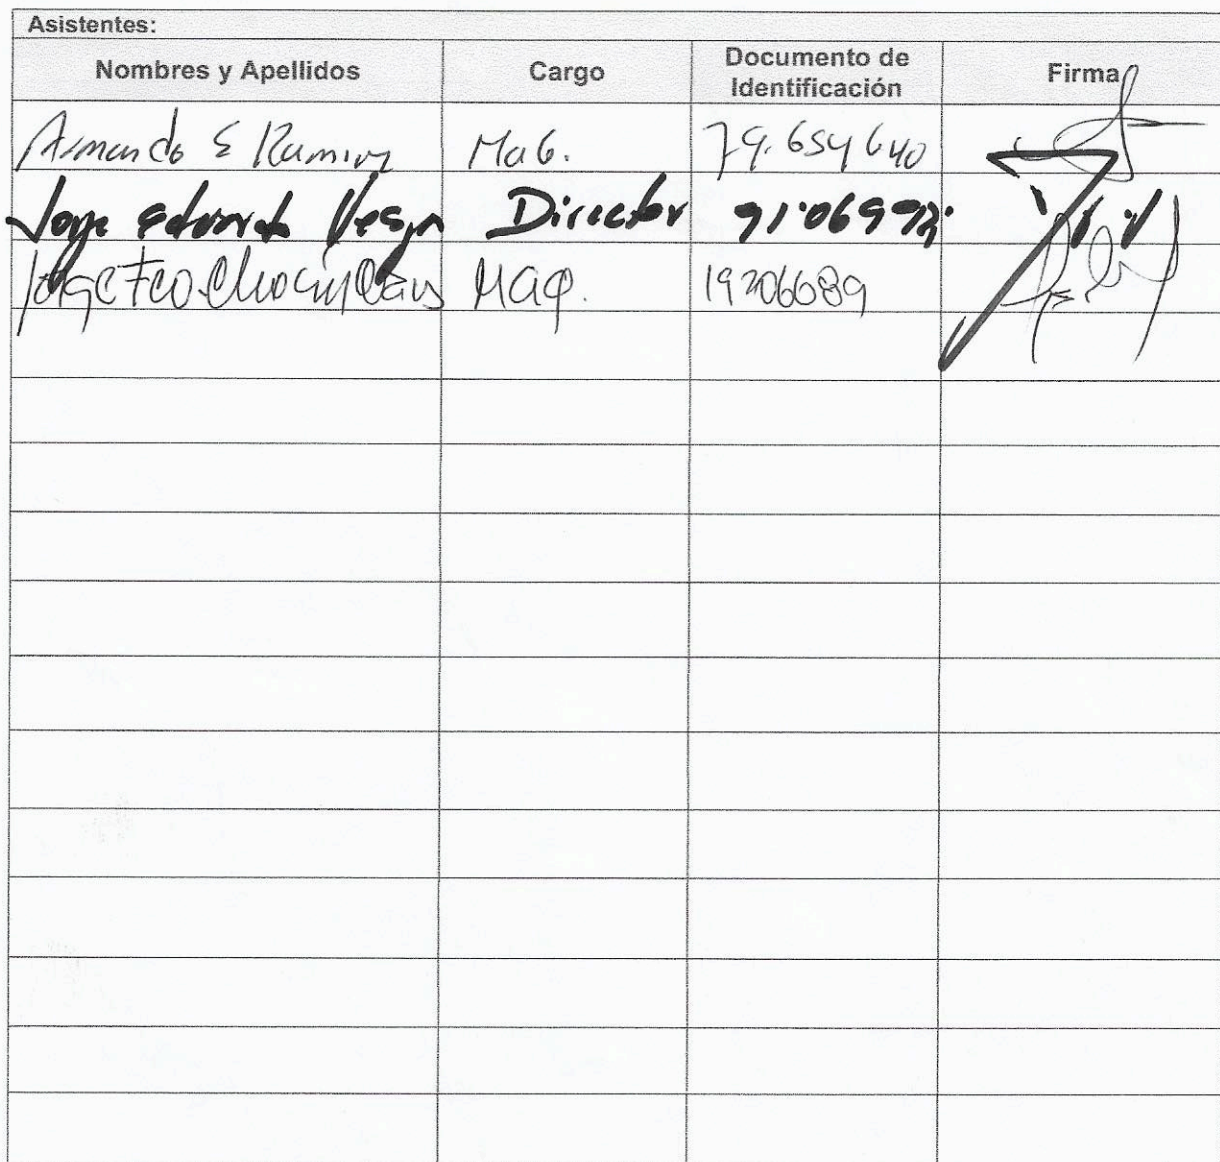 Asistentes:
Nombres y Apellidos Cargo Documento de Identificación Firma
Armando E Ramirez Mag. 79.654640
Jorge Eduardo Director
Jorge Fco. Mag. 19206689